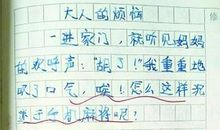 大人的烦恼
一进家门，就听见妈妈
的欢呼声："胡了！"我重重地
叹了口气，唉！怎么这样沉
迷于麻将呢？